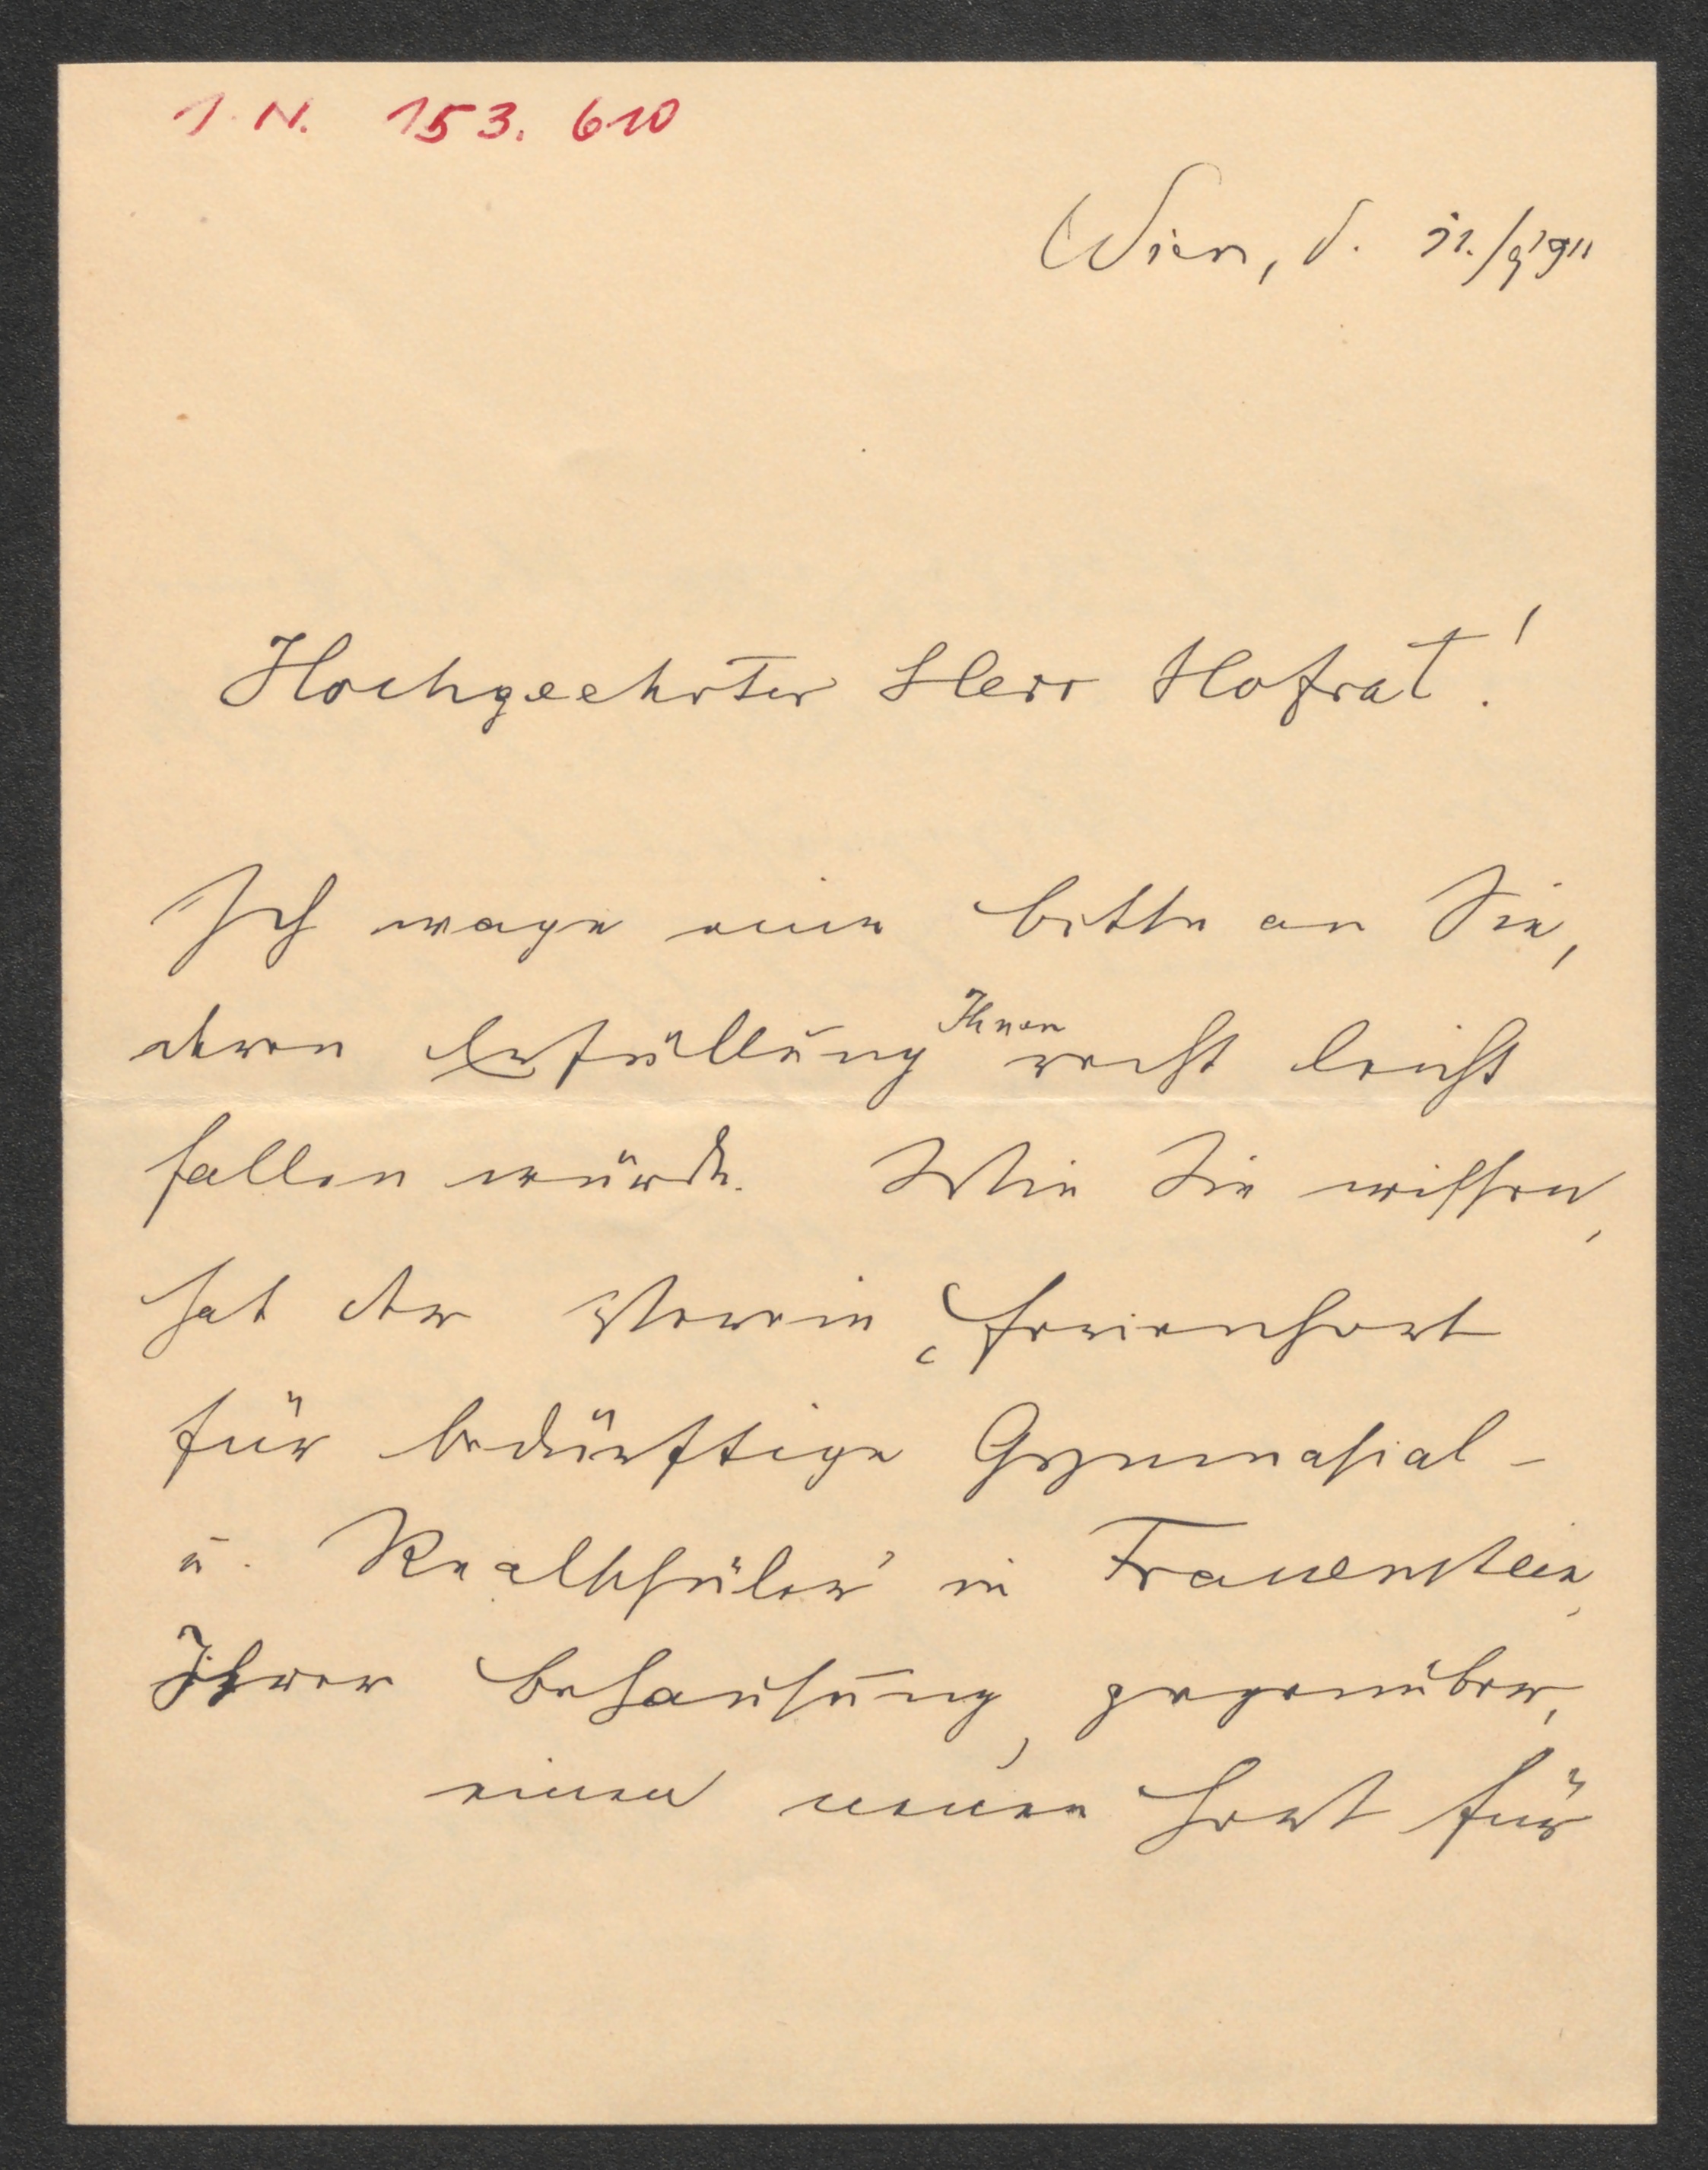 I. N. 153.610
Wien, d. 21./9 1911
Hochgeehrter Herr Hofrat!
Ich wage eine Bitte an Sie,
deren Erfüllung Ihnen recht leicht
fallen würde. Wie Sie wissen,
hat der Verein „Ferienhort
für bedürftige Gymnasial-
u. Realschüler" in Frauenstein,
Ihrer Behausung, gegenüber,
einen neuen Hort für